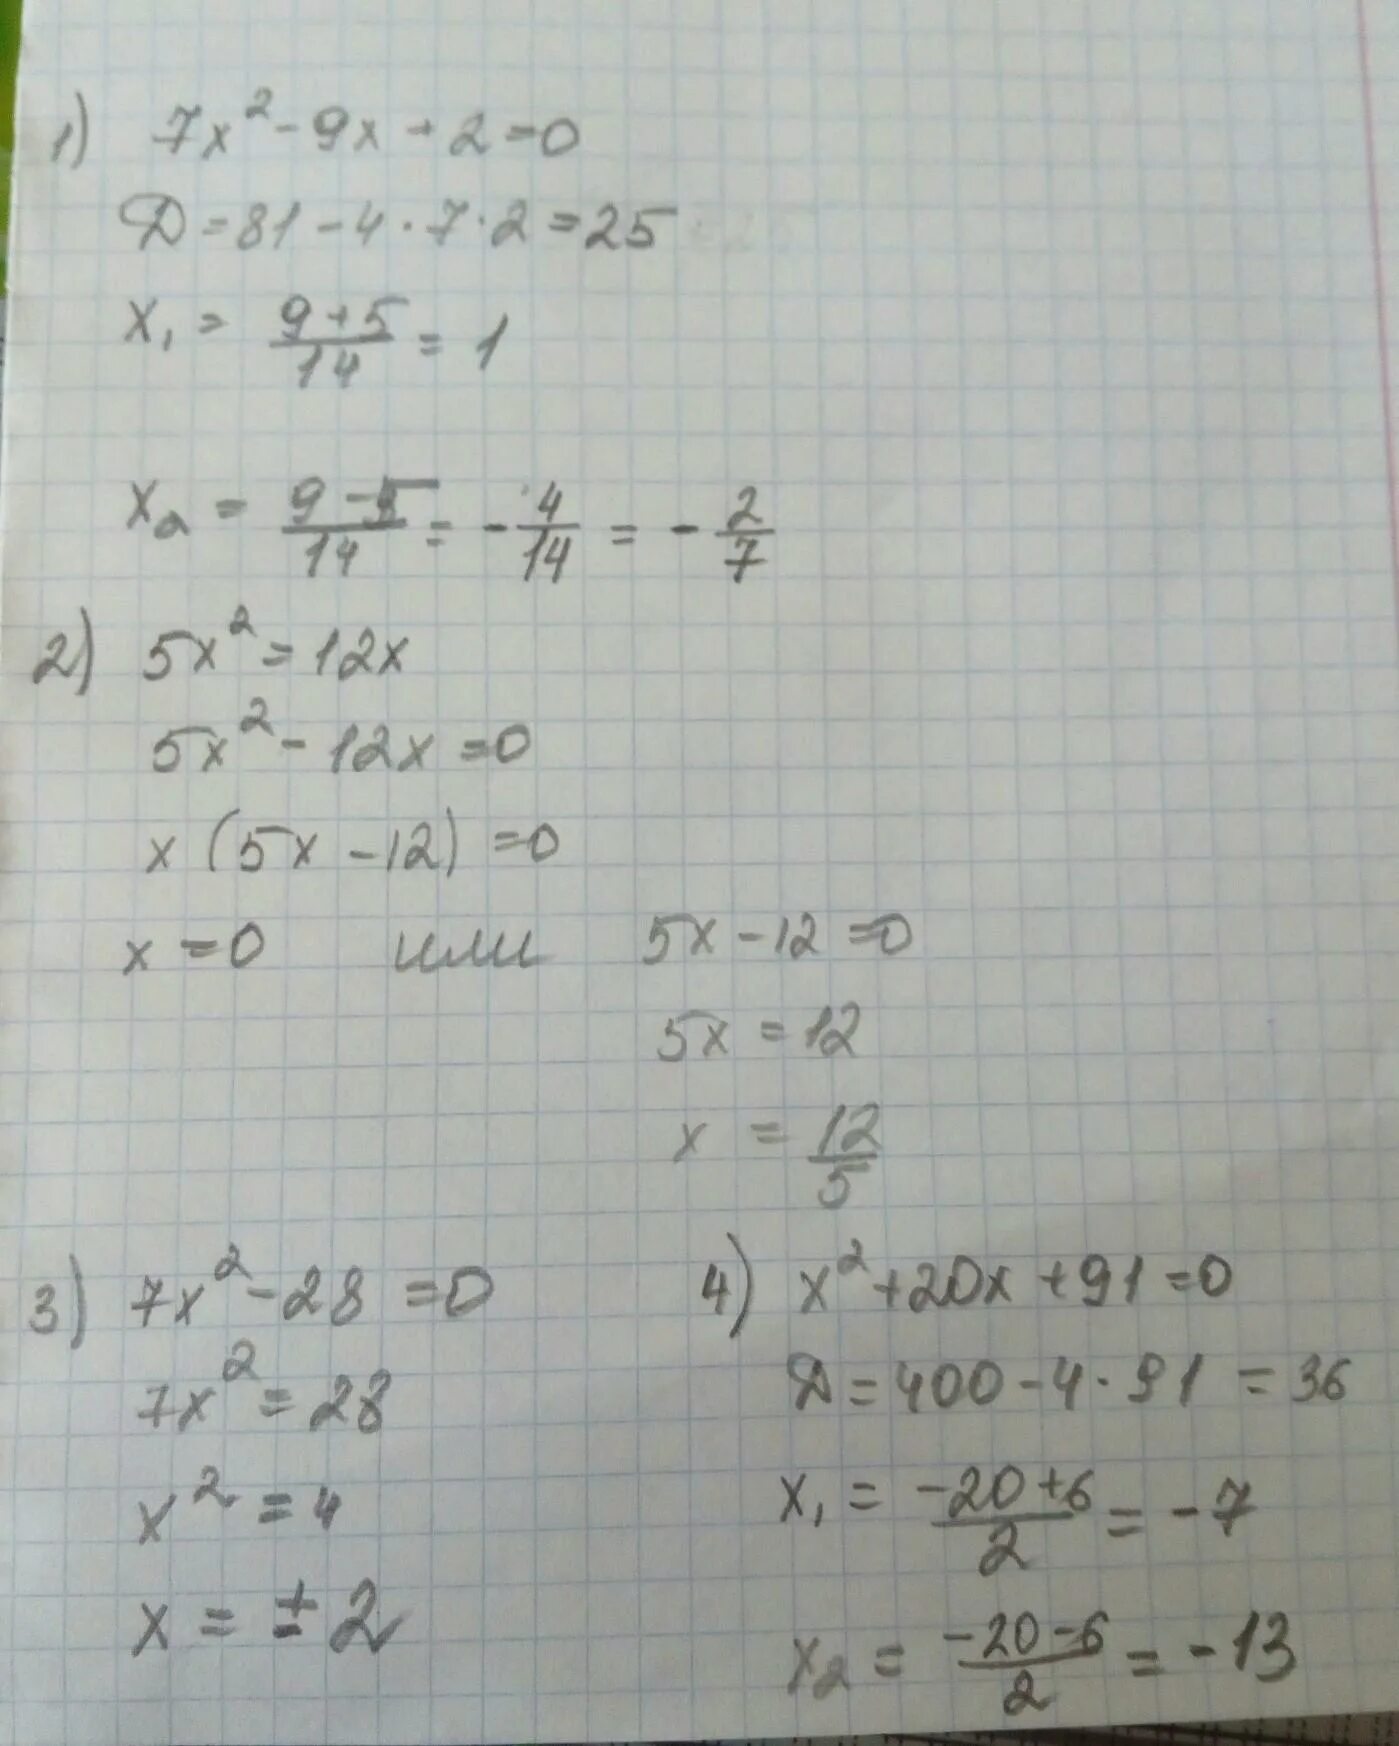 1) 7x² - 9x + 2 = 0
D = 81 - 4 · 7 · 2 = 25
x₁ = (9+5)/14 = 1
x₂ = (9-5)/14 = - 4/14 = - 2/7
2) 5x² = 12x
5x² - 12x = 0
x (5x - 12) = 0
x = 0 или 5x - 12 = 0
5x = 12
x = 12/5
3) 7x² - 28 = 0
7x² = 28
x² = 4
x = ± 2
4) x² + 20x + 91 = 0
D = 400 - 4 · 91 = 36
x₁ = (-20+6)/2 = -7
x₂ = (-20-6)/2 = -13